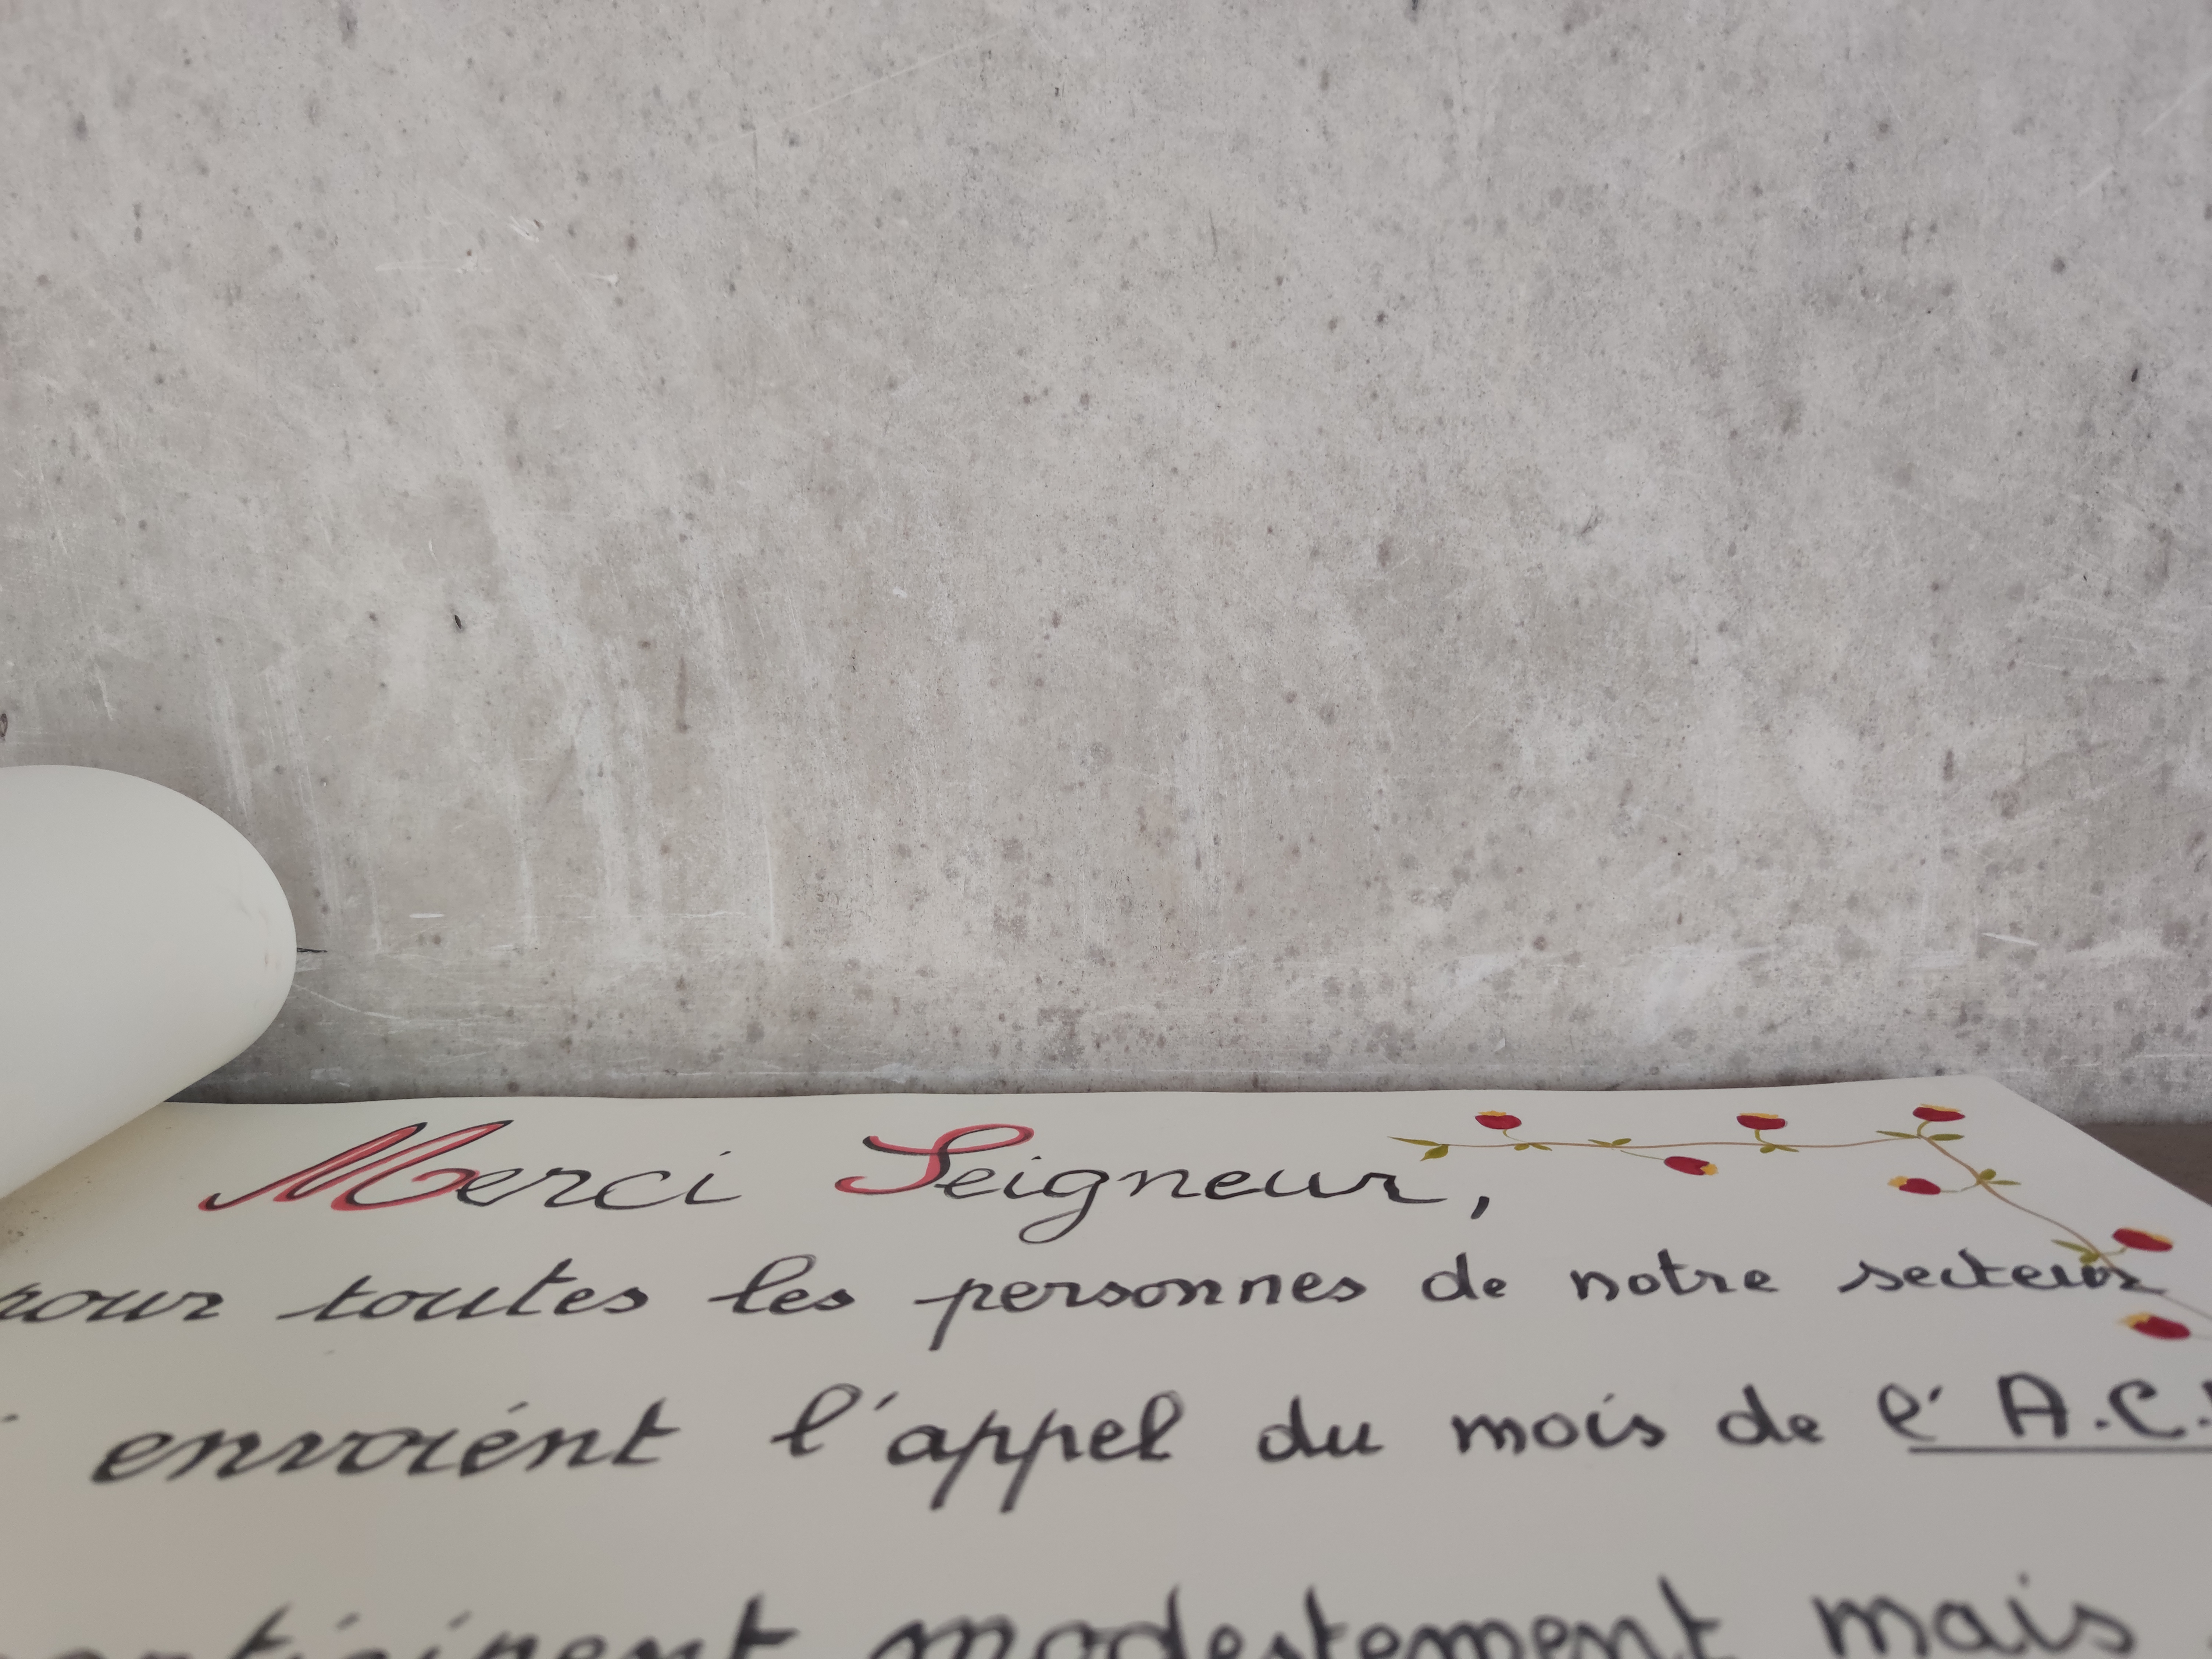 Merci Seigneur,
pour toutes les personnes de notre secteur
envoient l'appel du mois de l'A.C.
participent modestement mais